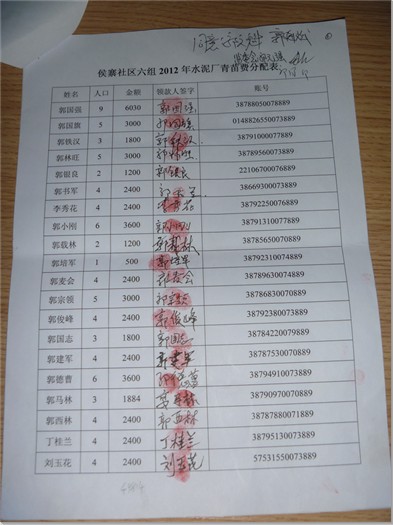 侯寨社区六组2012年水泥厂青苗费分配表
姓名 人口 金额 领款人签字 账号
郭国强 9 6030 郭国强 38788050078889
郭国旗 5 3000 郭国旗 014882655007​3889
郭铁汉 3 1800 郭铁汉 38791000077889
郭林旺 5 3000 郭林旺 38789560073889
郭银良 2 1200 郭银良 22106700076889
郭书军 4 2400 38669300073889
李秀花 4 2400 李秀花 38792250076889
郭小刚 6 3600 38791310077889
郭载林 2 1200 郭载林 38785650070889
郭培军 1 500 郭培军 38792310074889
郭麦会 4 2400 郭麦会 38789630074889
郭宗领 5 3000 郭宗领 38786830070889
郭俊峰 4 2400 郭俊峰 38792380073889
郭国志 3 1800 郭国志 38784220079889
郭建军 4 2400 郭建军 38787530070889
郭德曹 6 3600 38794910073889
郭马林 3 1884 38790970070889
郭西林 4 2400 郭西林 38787880071889
丁桂兰 4 2400 丁桂兰 38795130073889
刘玉花 4 2400 刘玉花 57531550073889